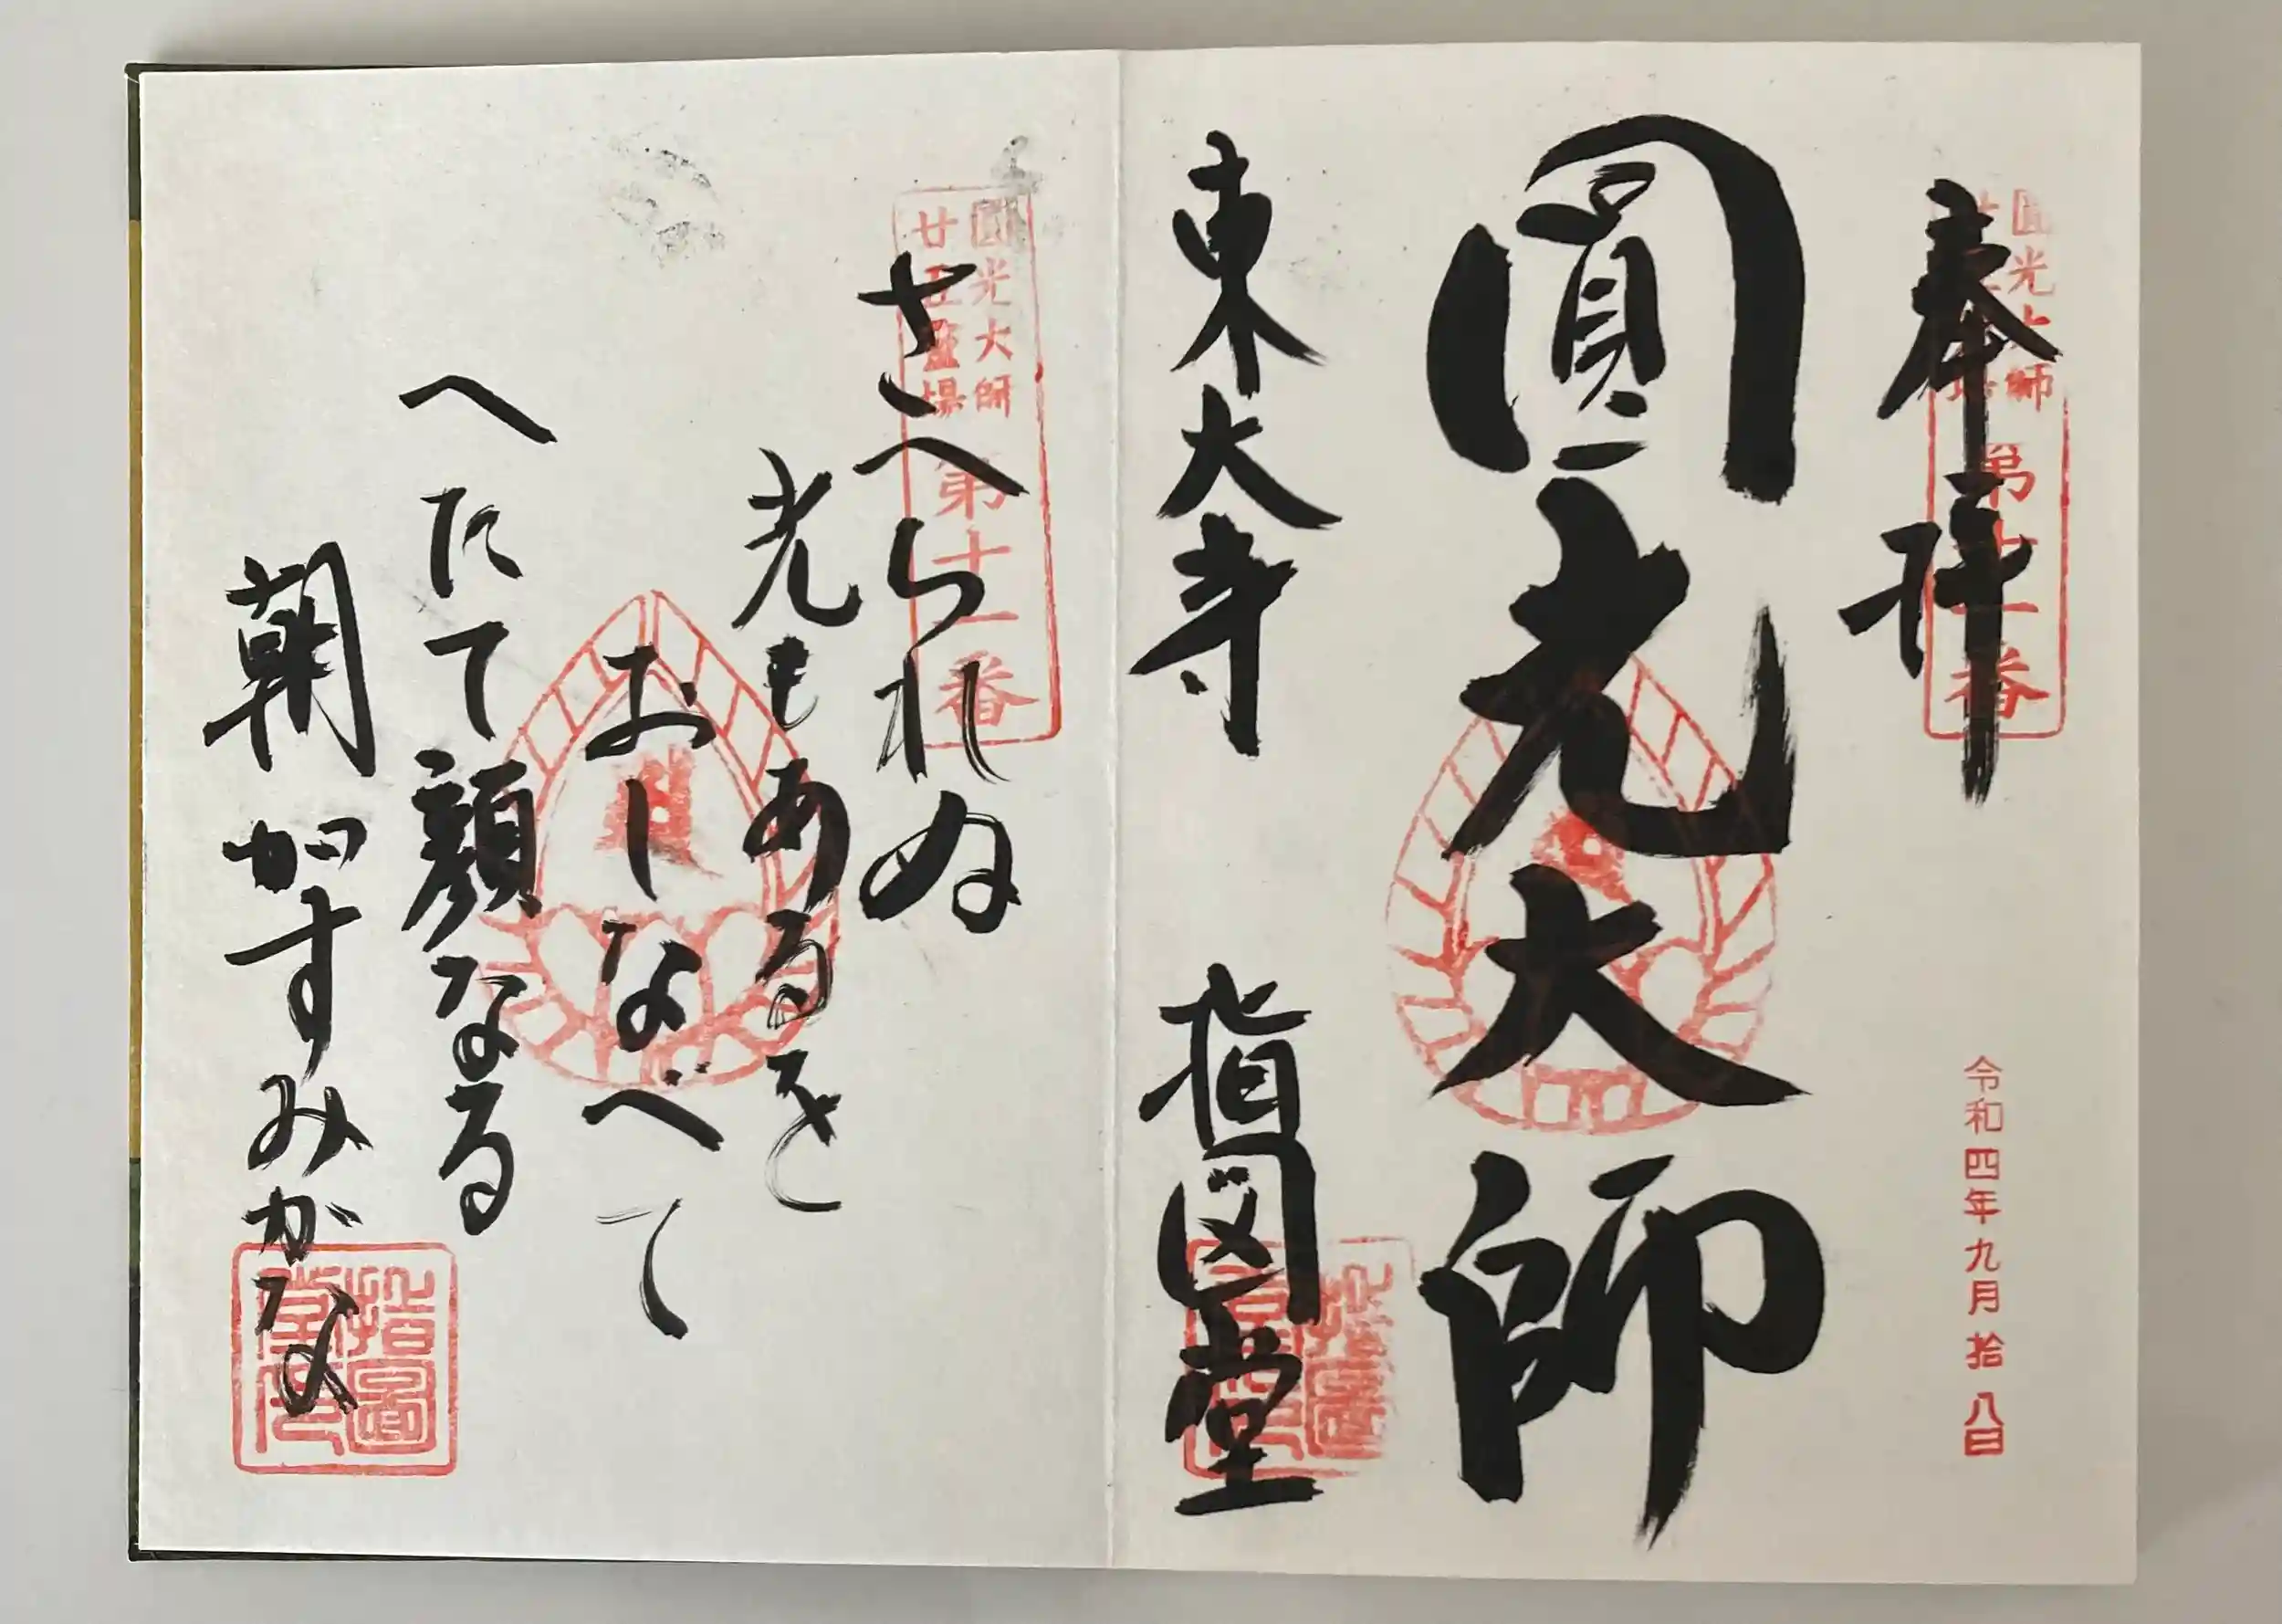 奉拝
圓光大師
第十一番
令和四年九月拾八日
圓光大師
東大寺 指図堂
圓光大師
廿五霊場
第十一番
さへられぬ
光もあるを
おしなべて
へたて顔なる
朝がすみかな
指圖堂印